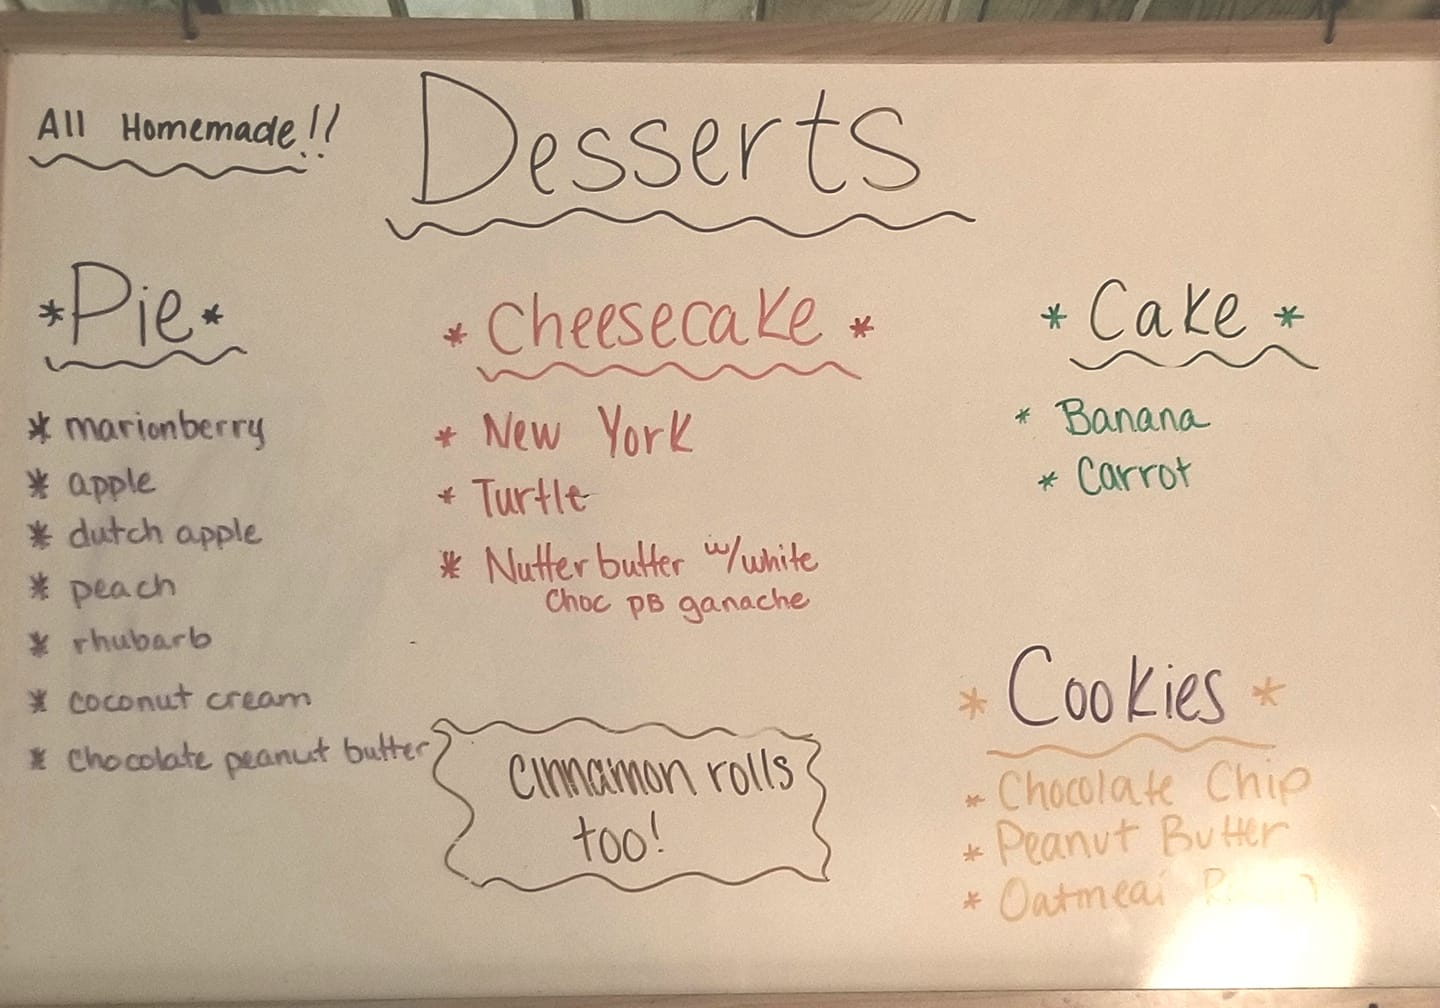 All Homemade!!
Desserts
*Pie*
* marionberry
* apple
* dutch apple
* peach
* rhubarb
* coconut cream
* chocolate peanut butter
* Cheesecake *
* New York
* Turtle
* Nutter butter w/white
Choc PB ganache
Cinnamon rolls
too!
* Cake *
* Banana
* Carrot
* Cookies *
* Chocolate Chip
* Peanut Butter
* Oatmeal